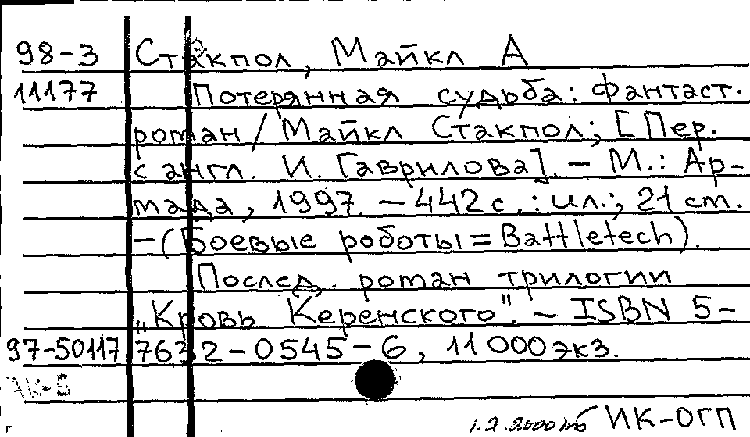 98-3 Стакпол, Майкл А
11177 Потерянная судьба: Фантаст.
роман / Майкл Стакпол; [Пер.
с англ. И. Гаврилова]. – М.: Ар-
мада, 1997. – 442 с.: ил.; 21 см.
– (Боевые роботы = Battletech).
Послед. роман трилогии
„Кровь Керенского". – ISBN 5-
97-50117 7632-0545-6, 11 000 экз.
ИК-ОГП